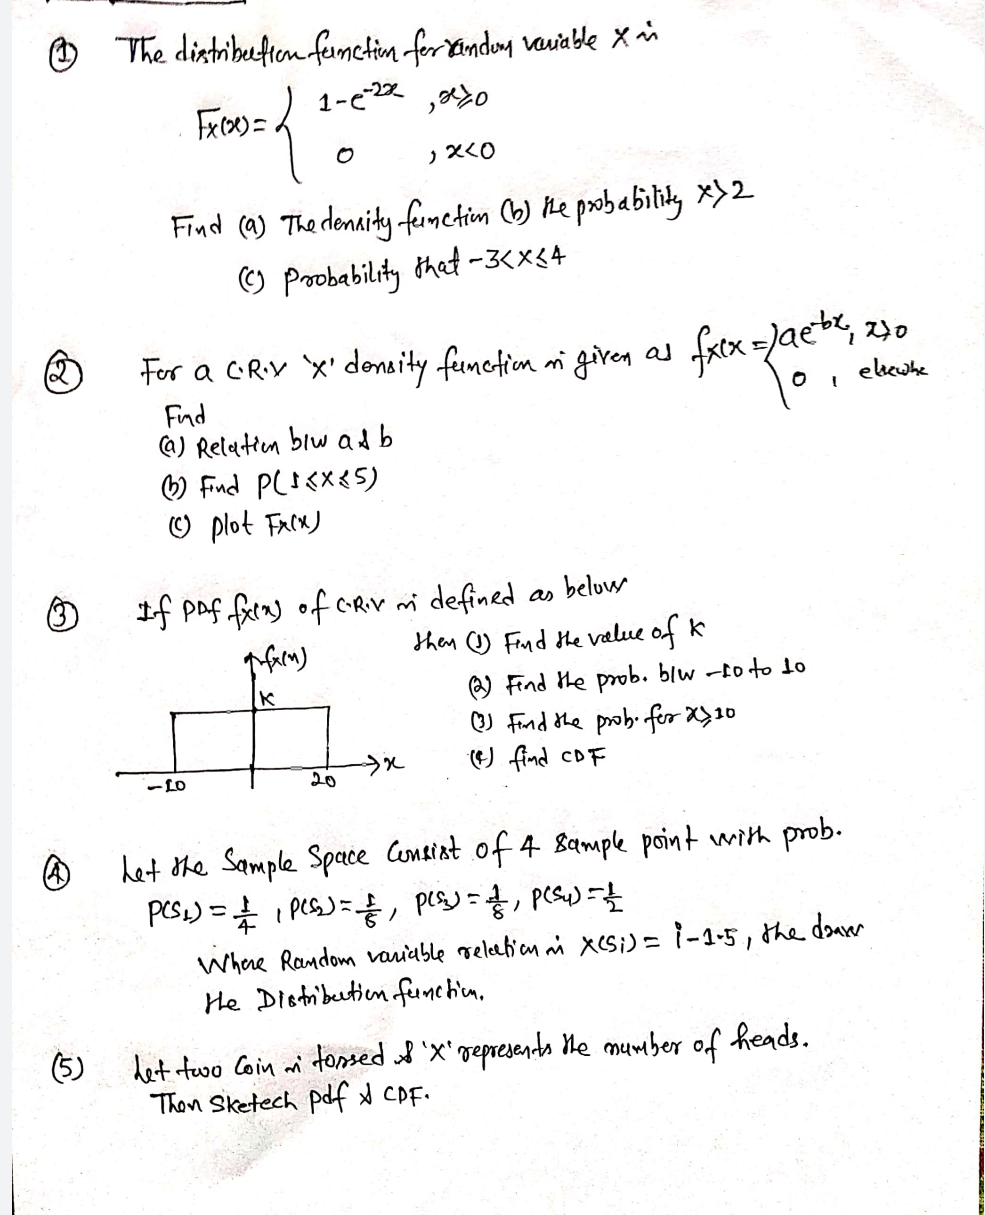 (1) The distribution function for random variable X is
Fx(x) = { 1-e^-2x , x≥0
0 , x<0
Find (a) The density function (b) the probability X>2
(c) Probability that -3<X≤4
(2) For a C.R.V 'X' density function is given as fx(x = { ae^-bx, x≥0
0 , elsewhe
Find
(a) Relation b/w a & b
(b) Find P(1≤X≤5)
(c) plot Fx(x)
(3) If PDF fx(x) of C.R.V is defined as below
then (1) Find the value of K
fx(x)
K
(2) Find the prob. b/w -10 to 10
(3) Find the prob. for x≥10
(4) find CDF
x
-10 20
(4) Let the Sample Space Consist of 4 Sample point with prob.
P(S1) = 1/4 , P(S2) = 1/8 , P(S3) = 1/8 , P(S4) = 1/2
Where Random variable relation is X(Si) = i-1.5, the draw
the Distribution function.
(5) Let two Coin is tossed & 'X' represents the number of heads.
Then Sketech pdf & CDF.